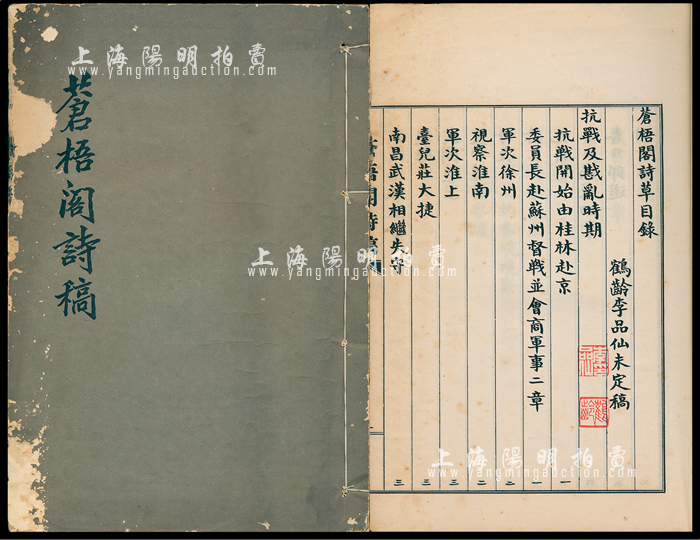 蒼梧閣詩稿
蒼梧閣詩草目錄
鶴齡李品仙未定稿
抗戰及戡亂時期
抗戰開始由桂林赴京 一
委員長赴蘇州督戰並會商軍事二章 一
軍次徐州 二
視察淮南 二
軍次淮上 三
臺兒莊大捷 三
南昌武漢相繼失守 三
上海陽明拍賣
www.yangmingauction.com
上海陽明拍賣
www.yangmingauction.com
上海陽明拍賣
www.yangmingauction.com
上海陽明拍賣
www.yangmingauction.com